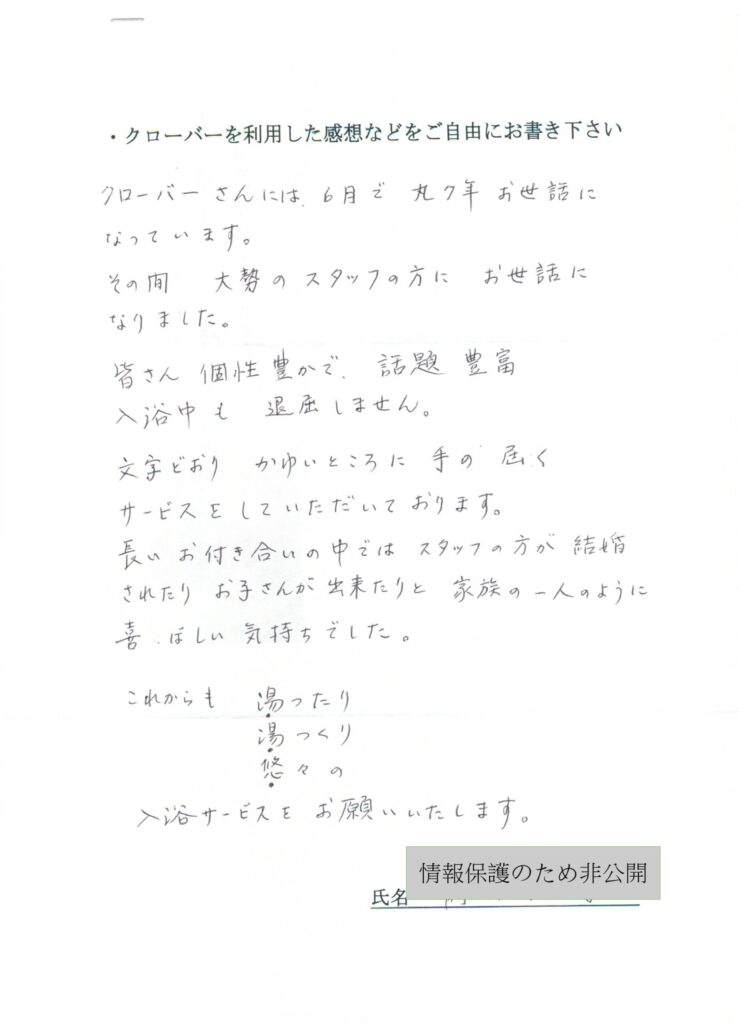 ・クローバーを利用した感想などをご自由にお書き下さい
クローバーさんには、6月で 丸7年 お世話に
なっています。
その間 大勢のスタッフの方に お世話に
なりました。
皆さん 個性豊かで、話題 豊富
入浴中も 退屈しません。
文字どおり かゆいところに 手の 届く
サービスをしていただいております。
長い お付き合いの中では スタッフの方が 結婚
されたり お子さんが 出来たりと 家族の一人のように
喜ばしい 気持ちでした。
これからも 湯ったり
湯っくり
悠々の
入浴サービスを お願いいたします。
情報保護のため非公開
氏名